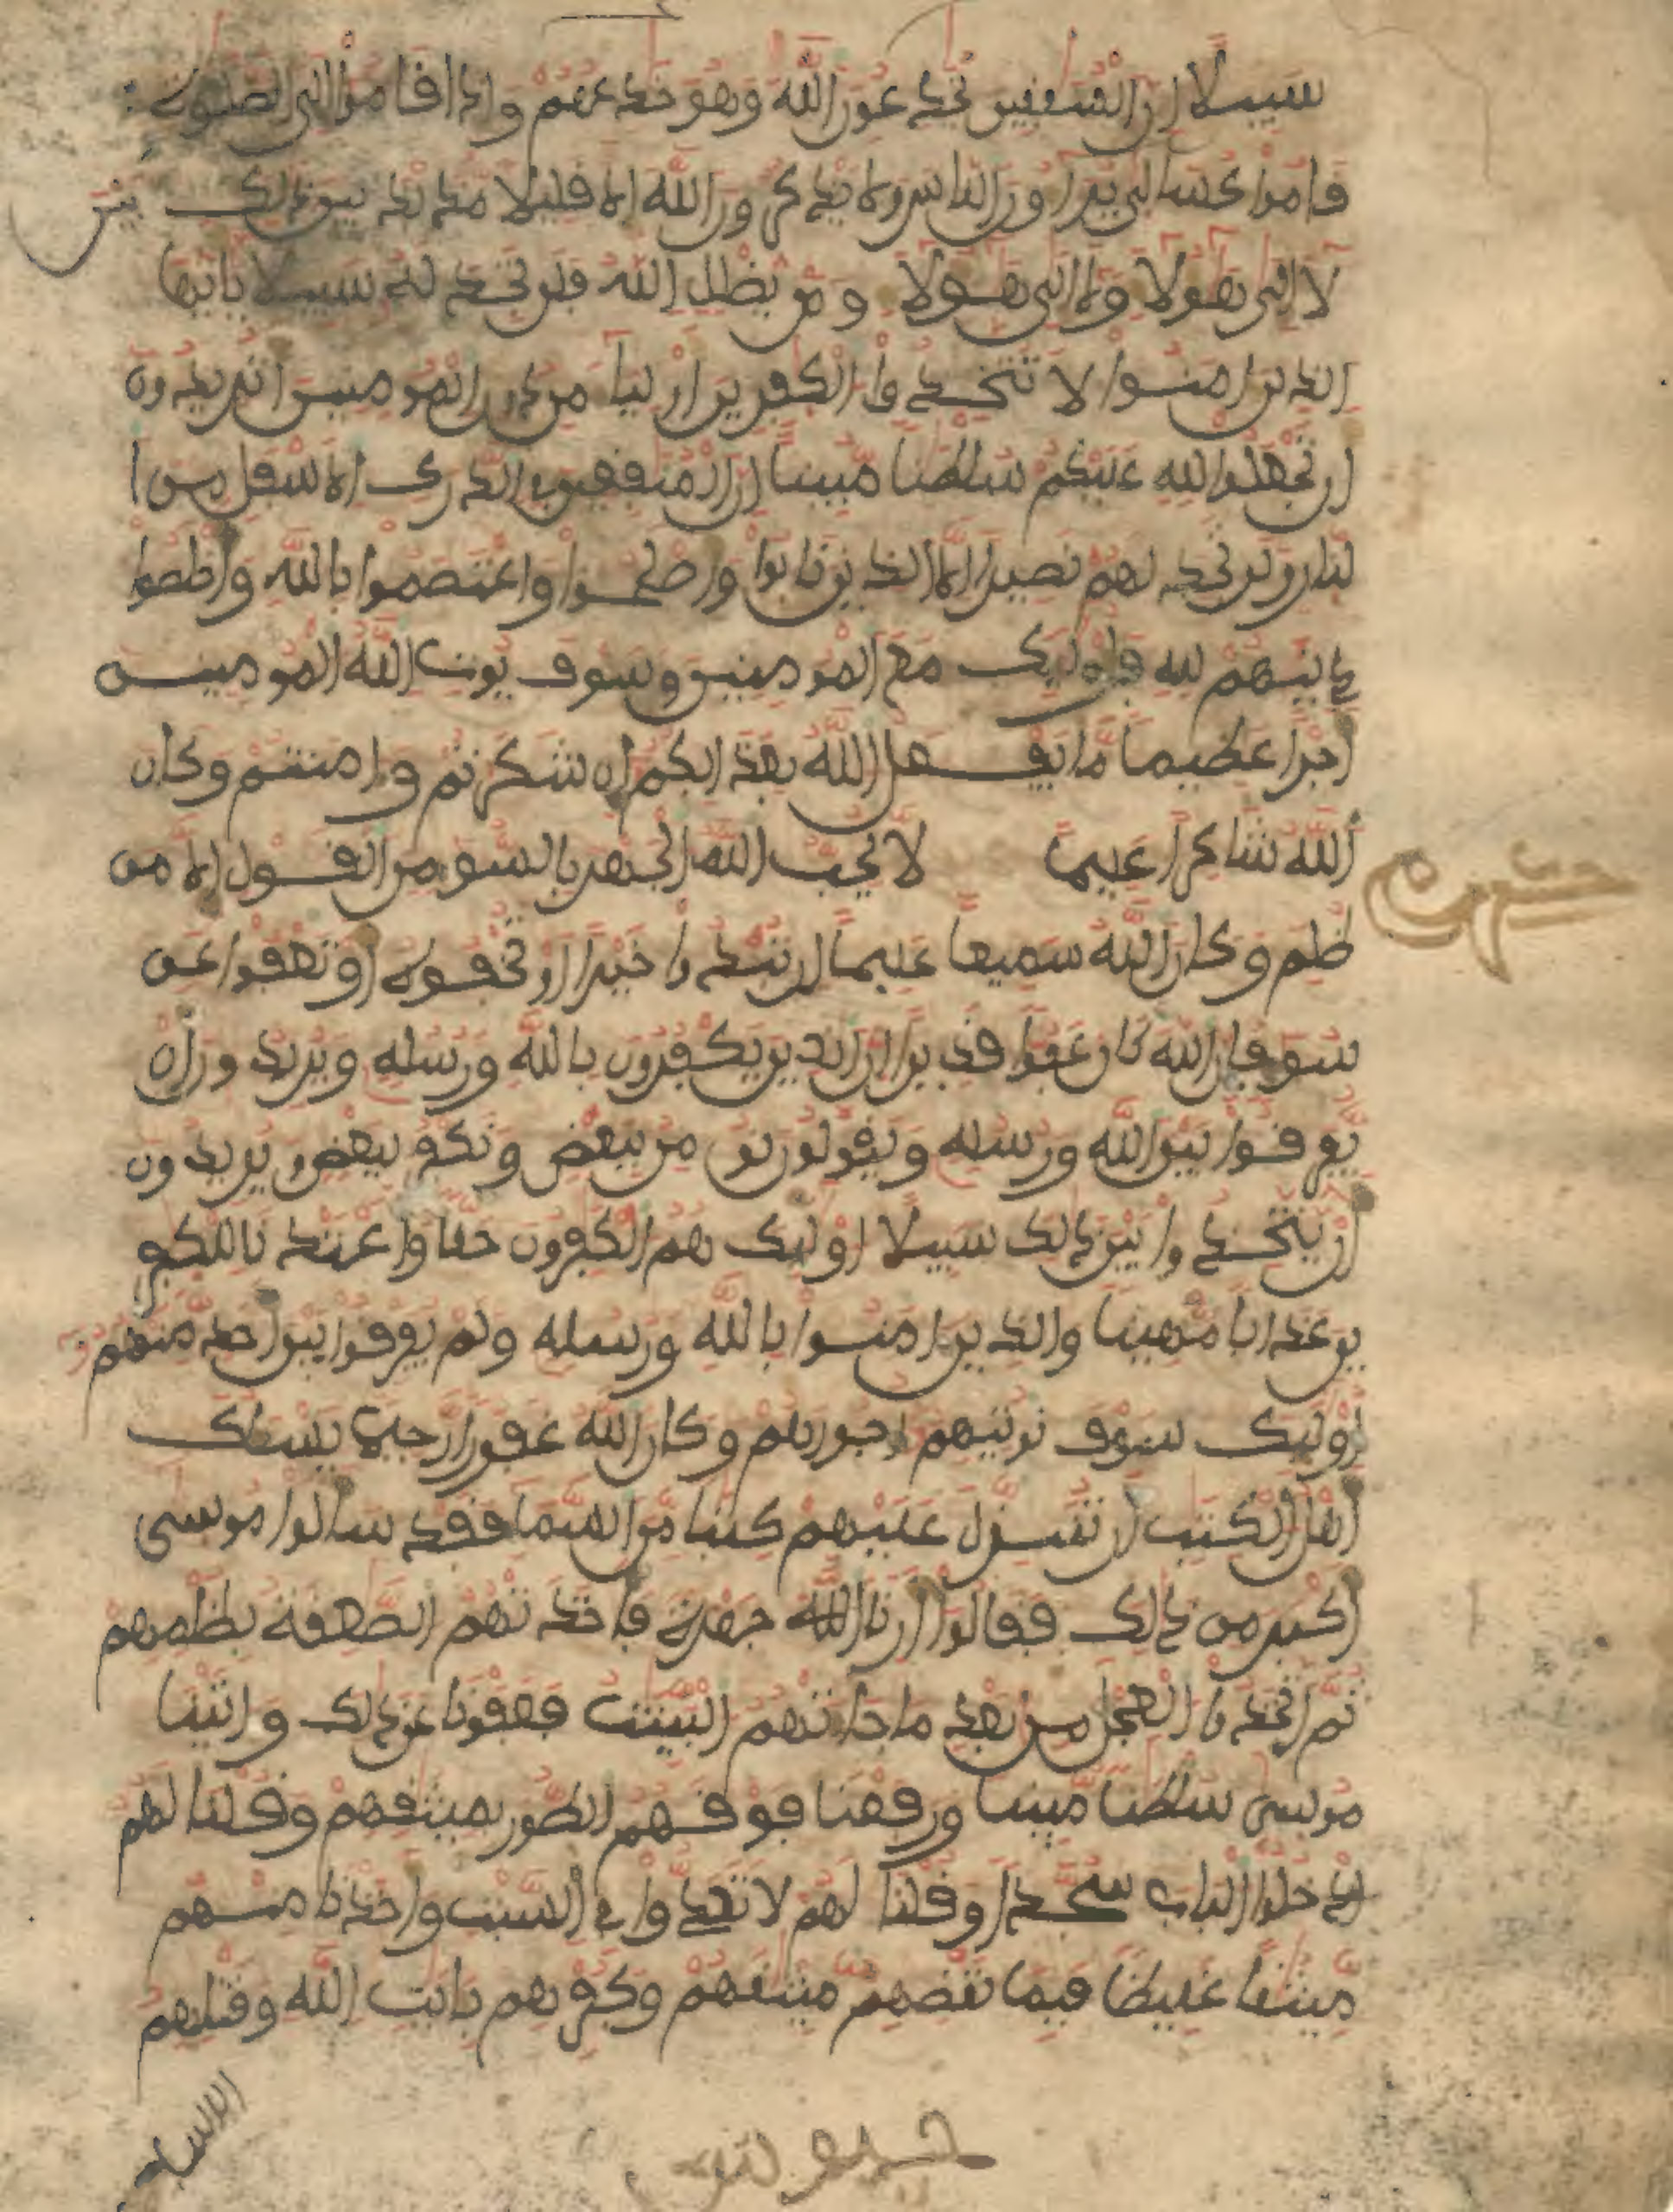 سبيلا ان المنفقين يخدعون الله وهو خدعهم واذا قاموا الى الصلوة
قاموا كسالى يراءون الناس ولا يذكرون الله الا قليلا مذبذبين ذلك بين
لا الى هولا ولا الى هولا ومن يظلل الله فلن تجد له سبيلا يايها
الذين امنوا لا تتخذوا الكفرين اوليا من دون المومنين اتريدون
ان تجعلوا لله عليكم سلطنا مبينا ان المنفقين في الدرك الاسفل من ا
لنار ولن تجد لهم نصيرا الا الذين تابوا واصلحوا واعتصموا بالله واخلصوا
دينهم لله فاوليك مع المومنين وسوف يوت الله المومنين
اجرا عظيما ما يفعل الله بعذابكم ان شكرتم وامنتم وكان
الله شاكرا عليما لا يحب الله الجهر بالسو من القول الا من
ظلم وكان الله سميعا عليما ان تبدوا خيرا او تخفوه او تعفوا عن
سو فان الله كان عفوا قديرا ان الذين يكفرون بالله ورسله ويريدون ان
يفرقوا بين الله ورسله ويقولون نومن ببعض ونكفر ببعض ويريدون
ان يتخذوا بين ذلك سبيلا اوليك هم الكفرون حقا واعتدنا للكفر
ين عذابا مهينا والذين امنوا بالله ورسله ولم يفرقوا بين احد منهم
اوليك سوف نوتيهم اجورهم وكان الله غفورا رحيما يسلك
اهل الكتب ان تنزل عليهم كتبا من السما فقد سالوا موسى
اكبر من ذلك فقالوا ارنا الله جهرة فاخذتهم الصعقة بظلمهم
ثم اتخذوا العجل من بعد ما جاتهم البينت فعفونا عن ذلك واتينا
موسى سلطنا مبينا ورفعنا فوقهم الطور بميثقهم وقلنا لهم
ادخلوا الباب سجدا وقلنا لهم لا تعدوا في السبت واخذنا منهم
ميثقا غليظا فبما نقضهم ميثقهم وكفرهم بايت الله وقتلهم